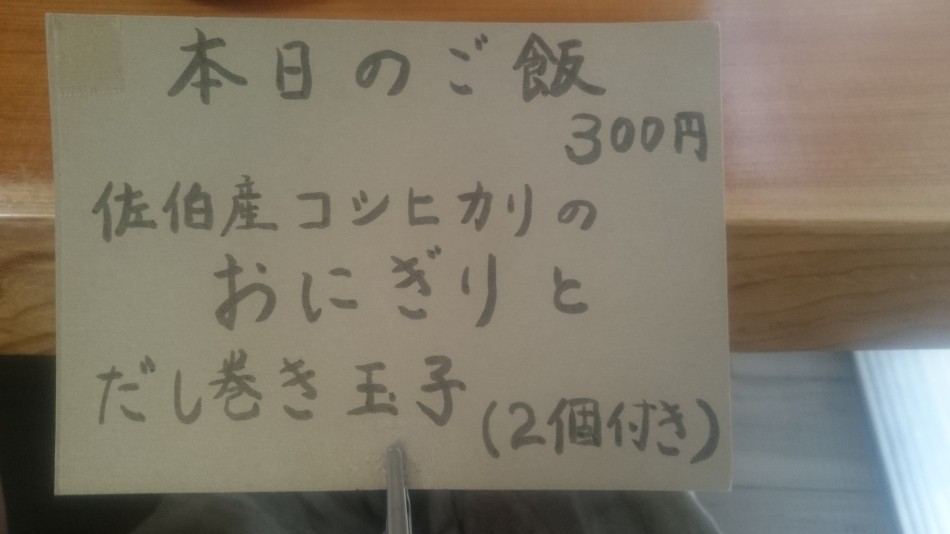 本日のご飯
300円
佐伯産コシヒカリの
おにぎりと
だし巻き玉子
(2個付き)